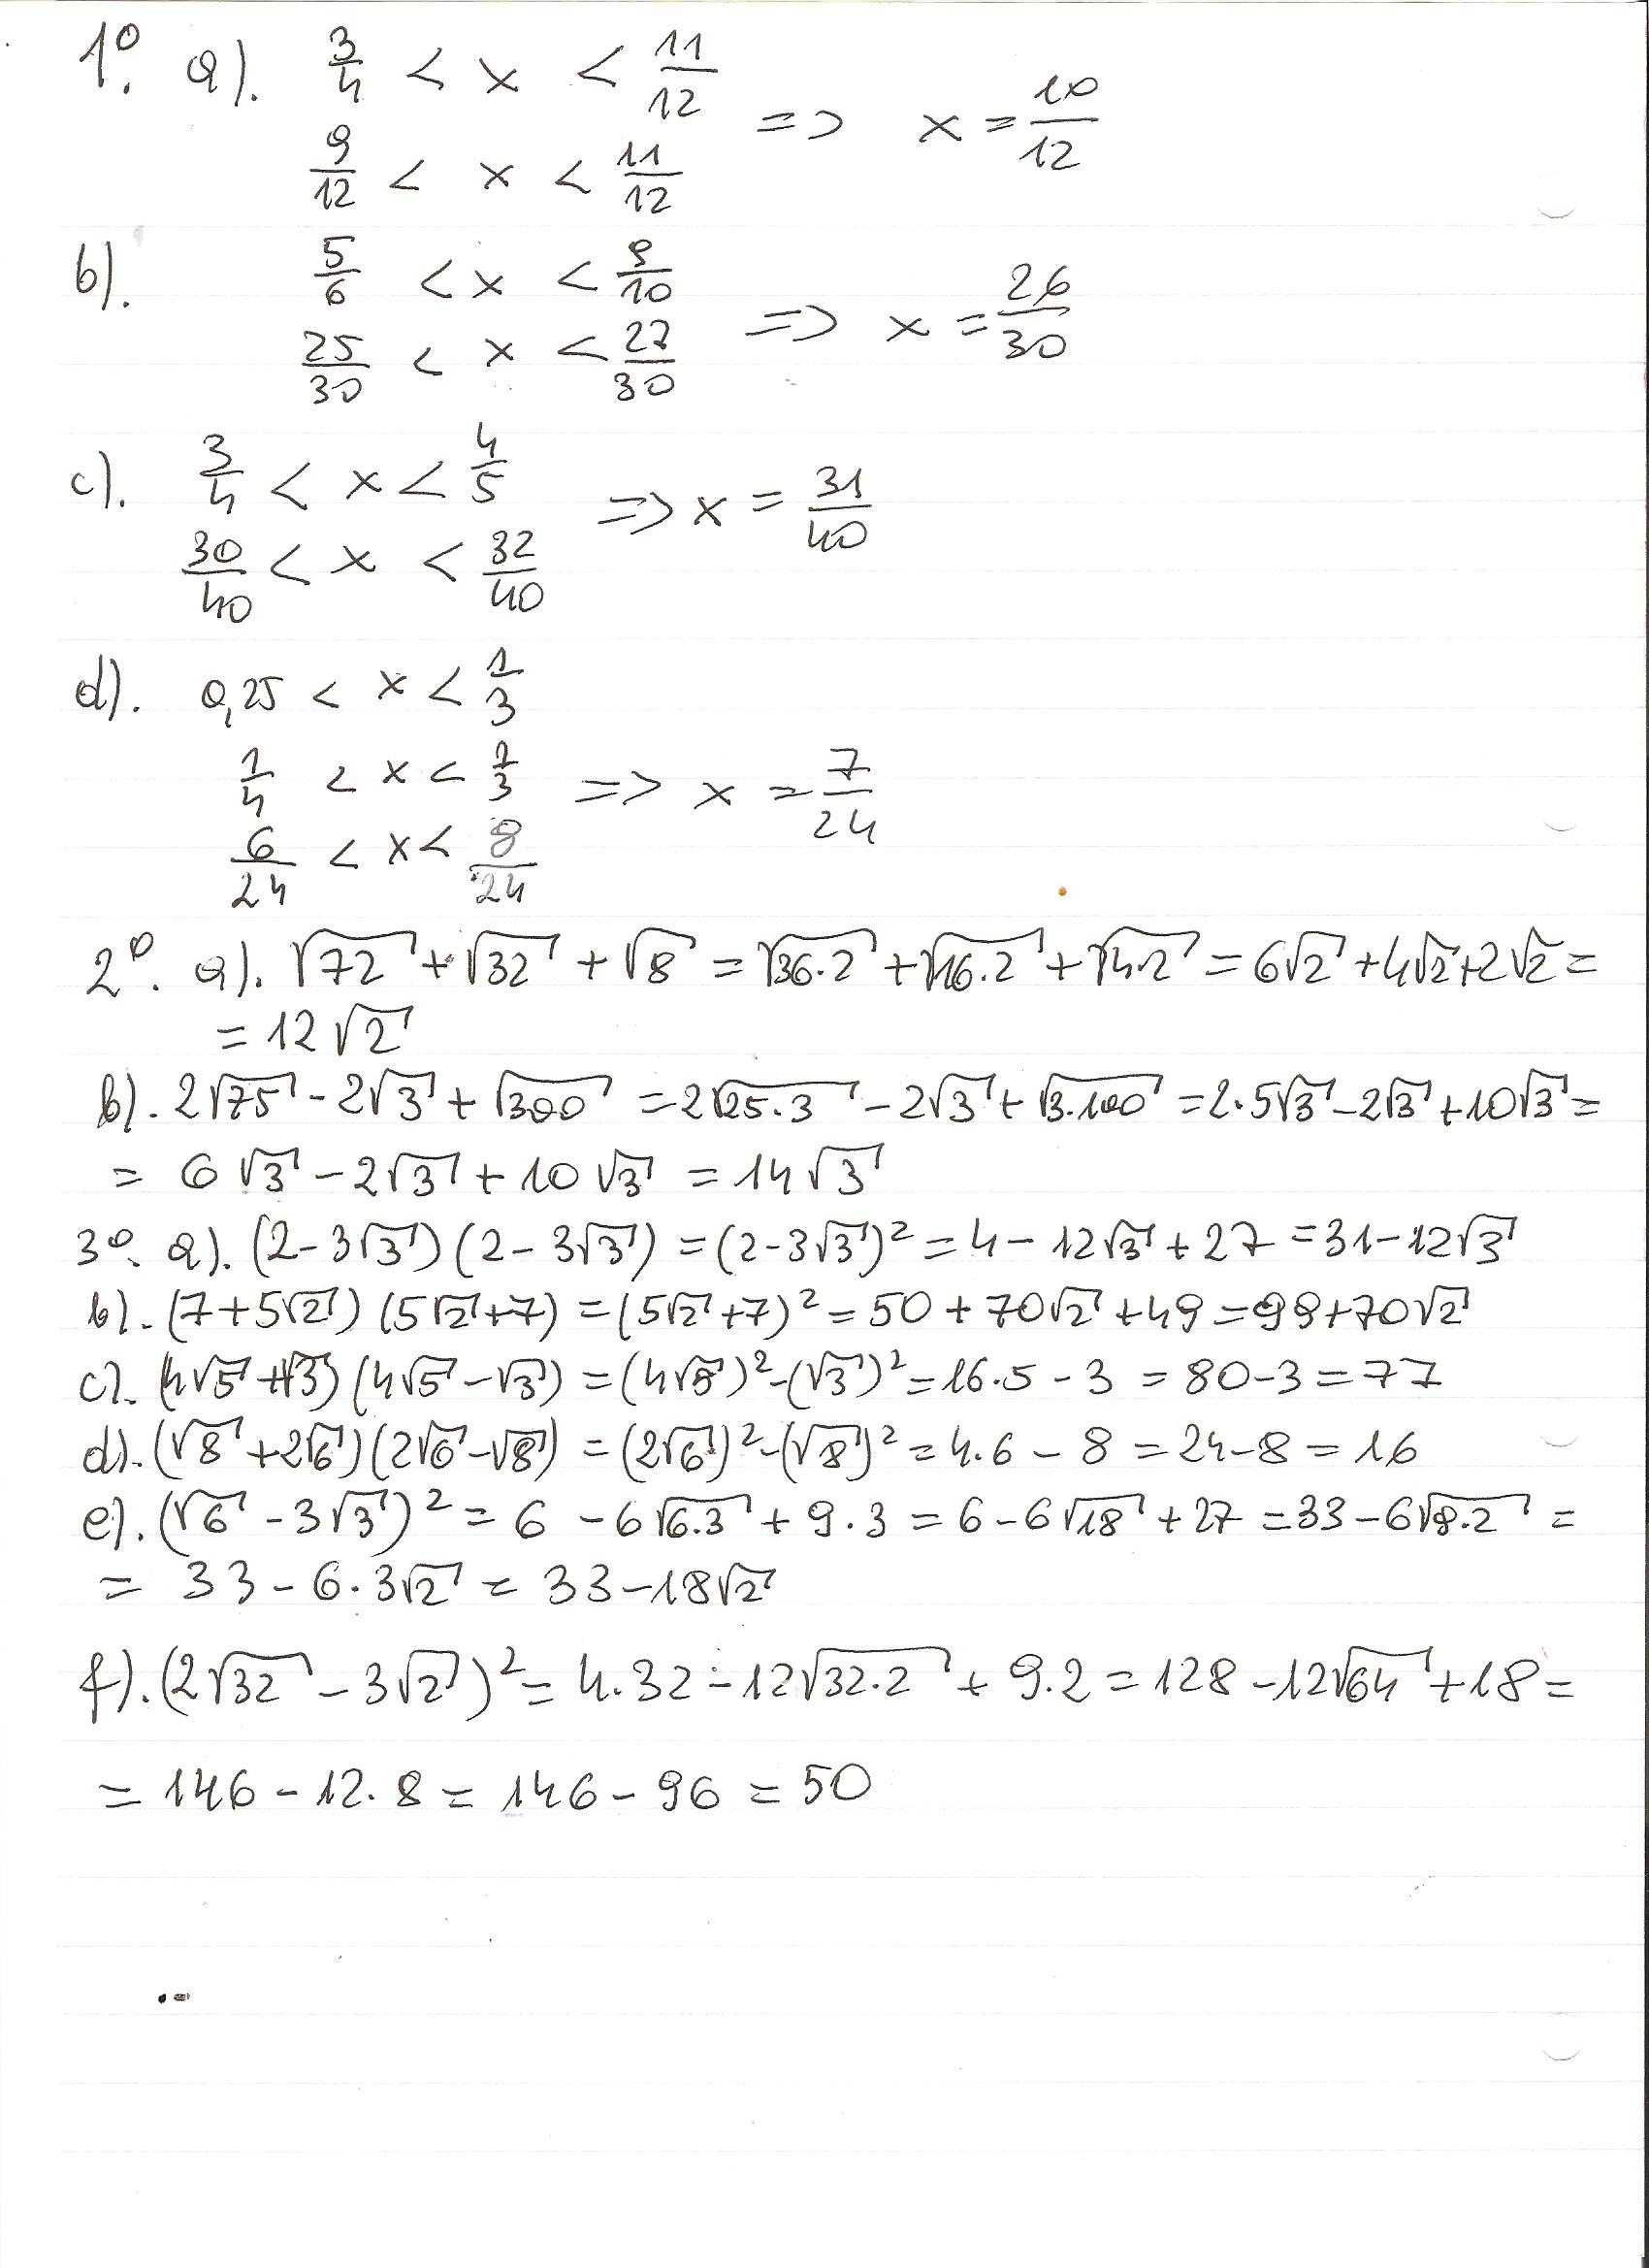 1º. a). 3/4 < x < 11/12
9/12 < x < 11/12 => x = 10/12
b). 5/6 < x < 9/10
25/30 < x < 27/30 => x = 26/30
c). 3/4 < x < 4/5
30/40 < x < 32/40 => x = 31/40
d). 0,25 < x < 1/3
1/4 < x < 1/3 => x = 7/24
6/24 < x < 8/24
2º. a). √72 + √32 + √8 = √36·2 + √16·2 + √4·2 = 6√2 + 4√2 + 2√2 =
= 12√2
b). 2√75 - 2√3 + √300 = 2√25·3 - 2√3 + √3·100 = 2·5√3 - 2√3 + 10√3 =
= 6√3 - 2√3 + 10√3 = 14√3
3º. a). (2 - 3√3)(2 - 3√3) = (2 - 3√3)² = 4 - 12√3 + 27 = 31 - 12√3
b). (7 + 5√2)(5√2 + 7) = (5√2 + 7)² = 50 + 70√2 + 49 = 99 + 70√2
c). (4√5 + √3)(4√5 - √3) = (4√5)² - (√3)² = 16·5 - 3 = 80 - 3 = 77
d). (√8 + 2√6)(2√6 - √8) = (2√6)² - (√8)² = 4·6 - 8 = 24 - 8 = 16
e). (√6 - 3√3)² = 6 - 6√6·3 + 9·3 = 6 - 6√18 + 27 = 33 - 6√9·2 =
= 33 - 6·3√2 = 33 - 18√2
f). (2√32 - 3√2)² = 4·32 - 12√32·2 + 9·2 = 128 - 12√64 + 18 =
= 146 - 12·8 = 146 - 96 = 50